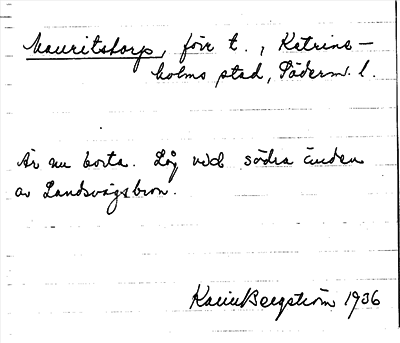 Mauritstorp, förr t., Katrine-
holms stad, Söderm. l.
Är nu borta. Låg vid södra änden
av Landsvägsbron.
Karin Bergström 1936